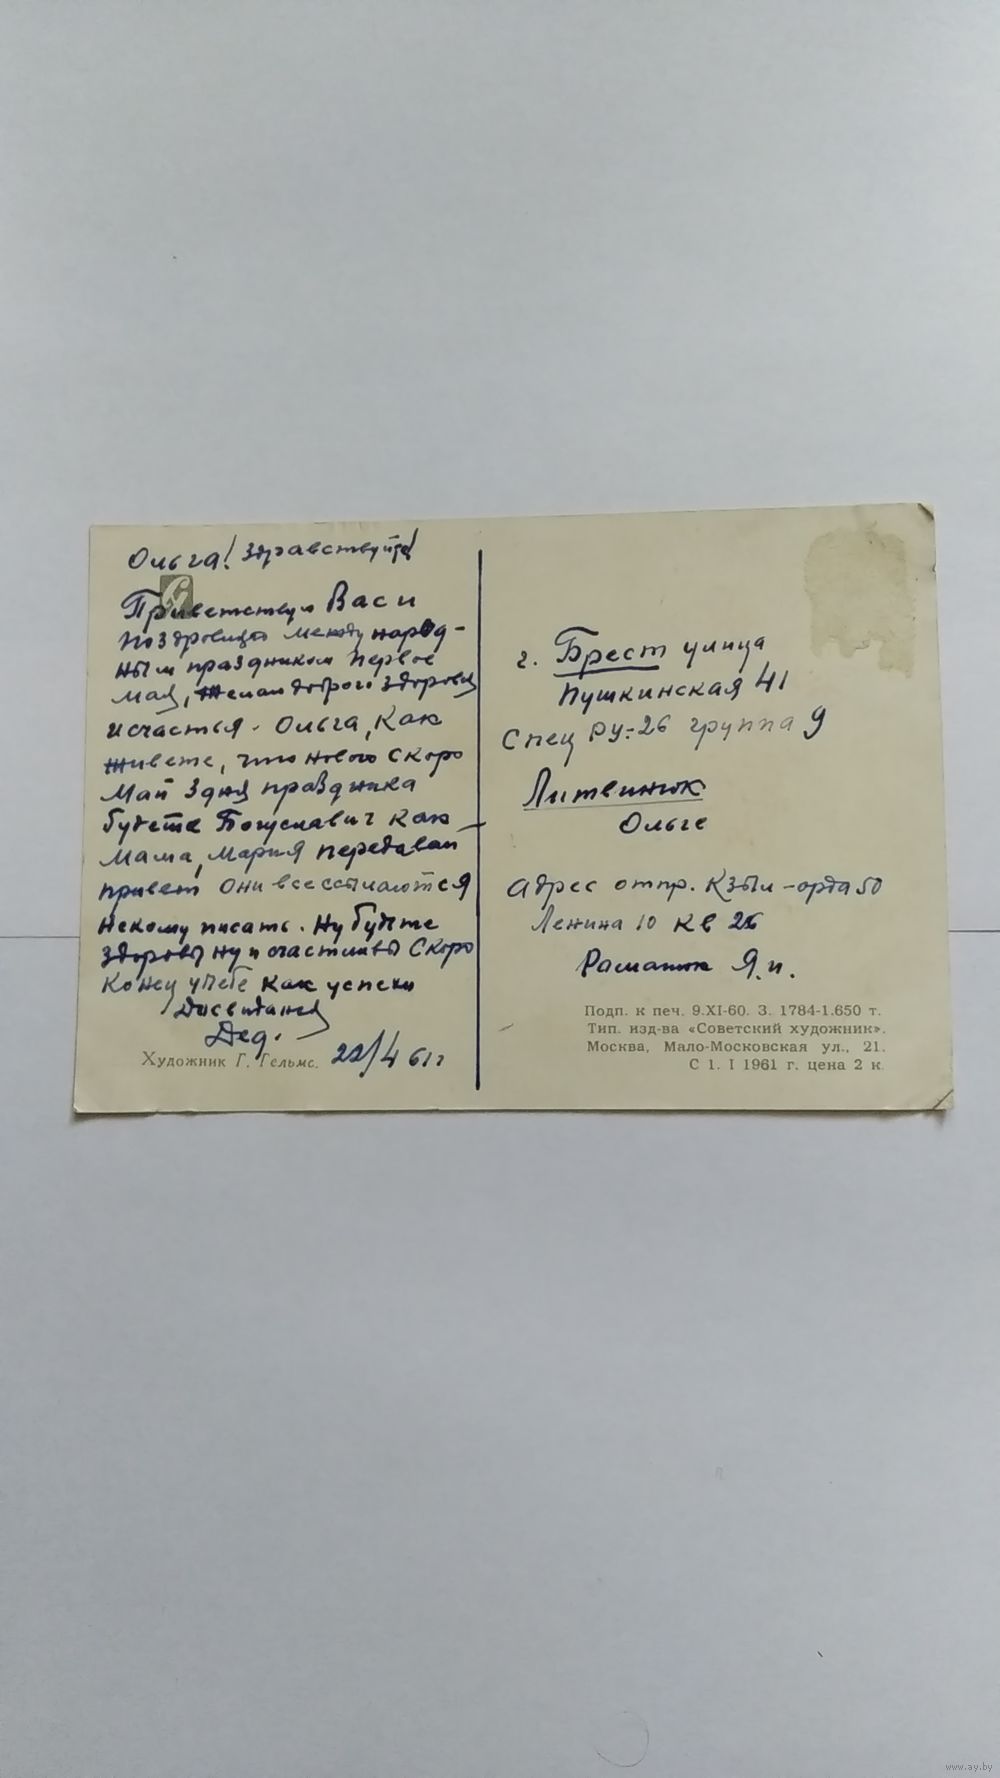 Ольга! Здравствуйте!
Приветствую Вас и
поздровляю между народ-
ным праздником первое
мая, Желаю доброго здоровя
и счастья. Ольга, Как
живете, что нового скоро
Май 3 дня праздника
будете Богуславич как
мама, Мария передавай
привет они все ссылаются
Некому писать. Ну будьте
здоровы ну и счастливы Скоро
Конец учебе как успехи
Досвиданя
Дед.
22/4 61 г
Художник Г. Гельмс.
г. Брест улица
Пушкинская 41
Спец РУ-26 группа 9
Литвинюк
Ольге
Адрес отпр. Кзыл-орда 50
Ленина 10 кв 26
Романюк Я.и.
Подп. к печ. 9.XI-60. З. 1784-1.650 т.
Тип. изд-ва «Советский художник».
Москва, Мало-Московская ул., 21.
С 1. I 1961 г. цена 2 к.
www.ay.by